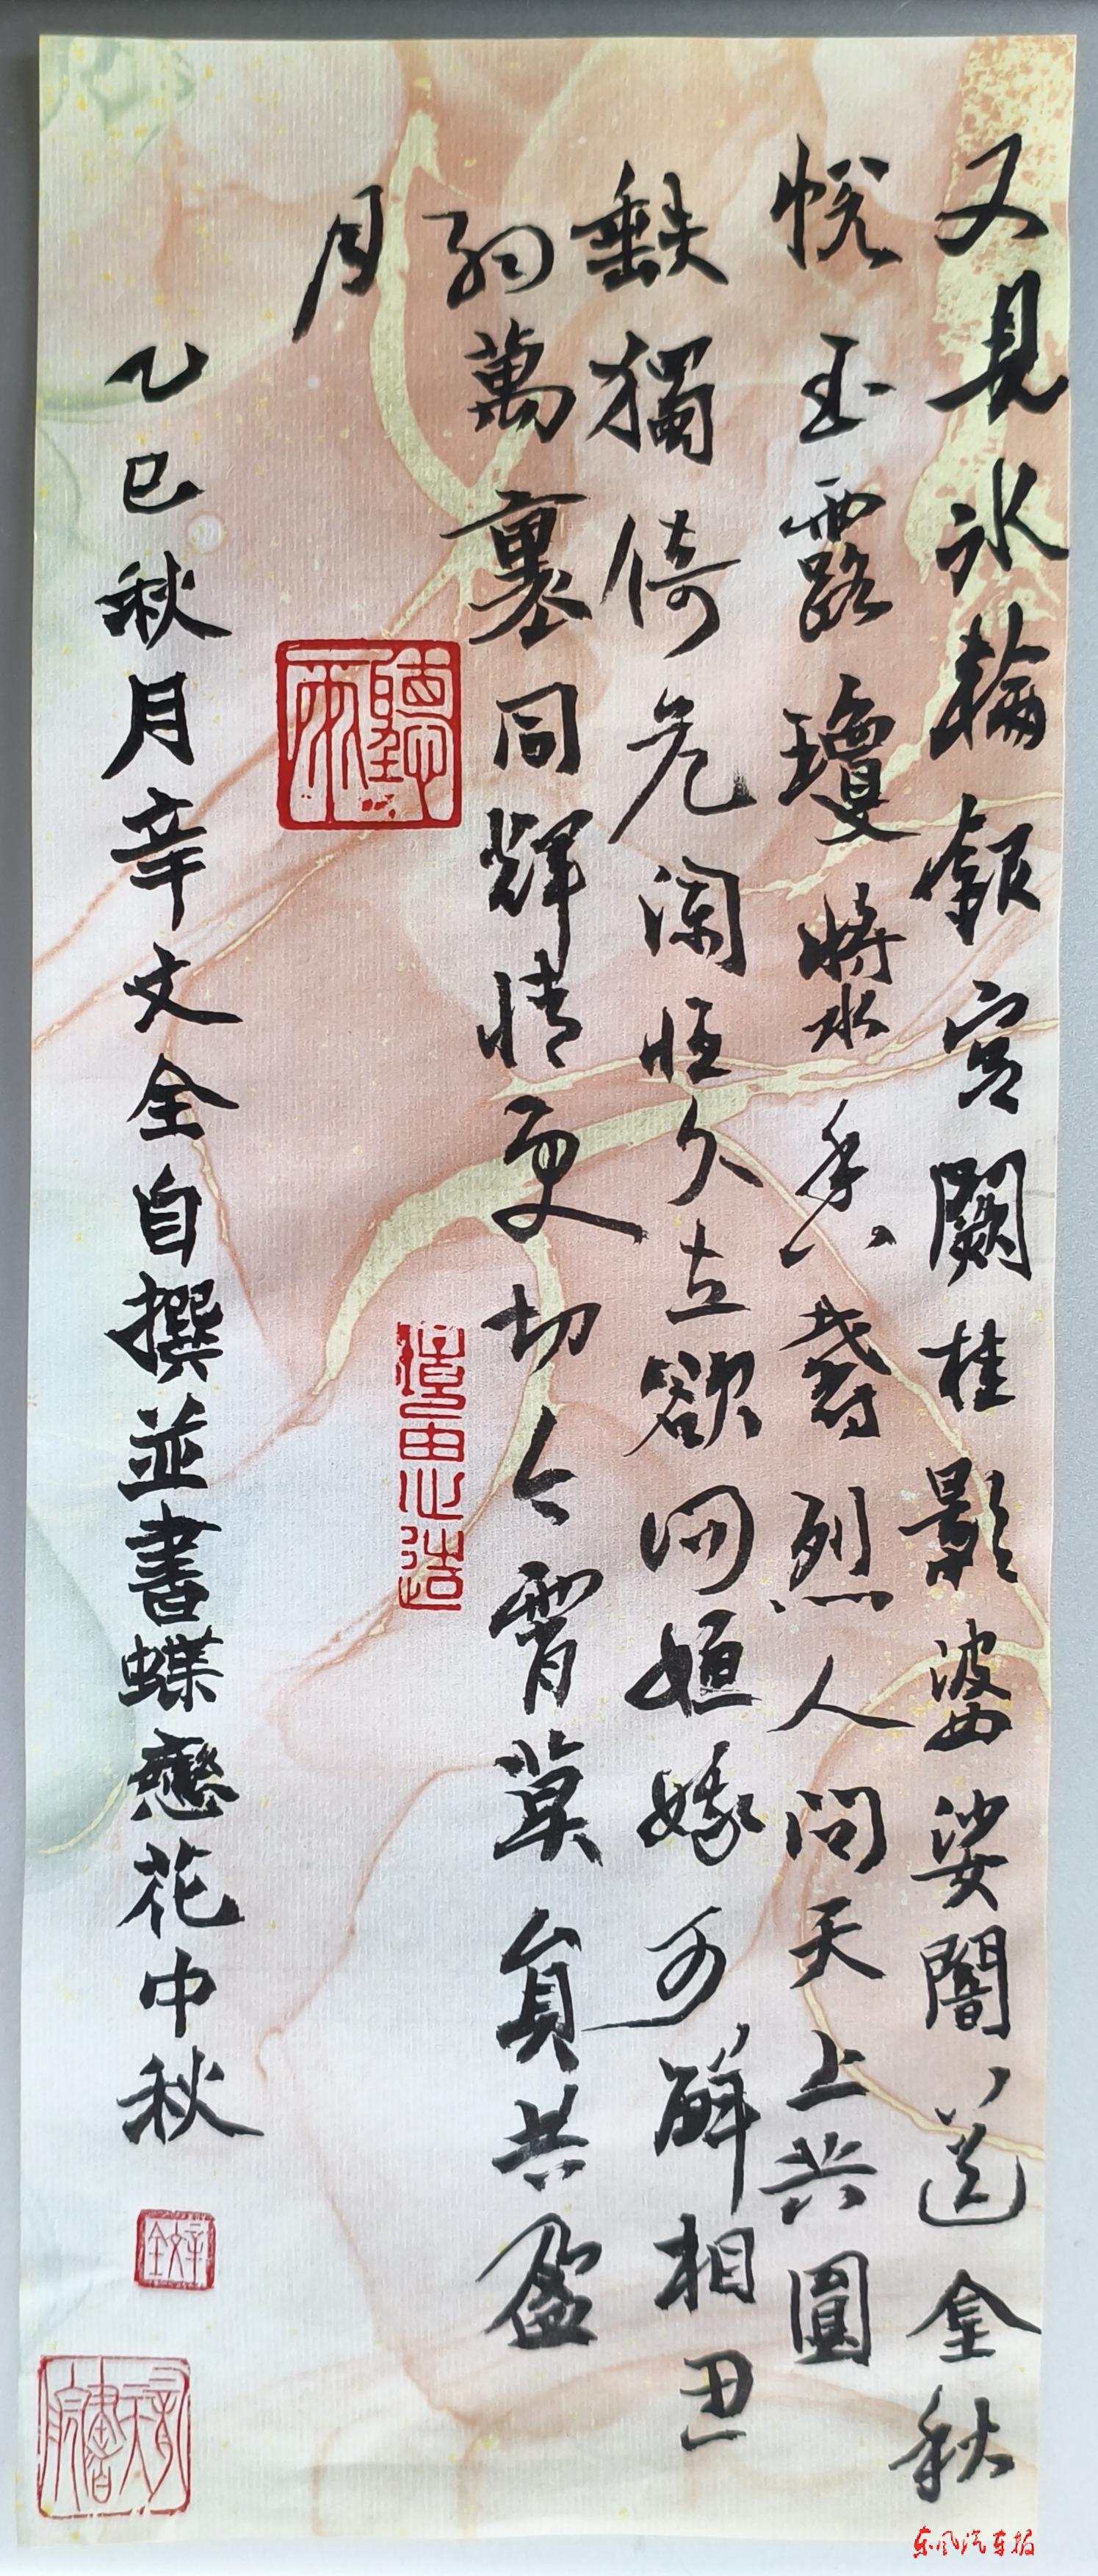 又見冰輪銀宮闕桂影婆娑闇、送金秋
悅玉露瓊漿香愈烈人間天上共圓
缺獨倚危闌恒久立欲問姮娥可解相思
約萬裏同輝情更切今宵莫負共盈
月
乙巳秋月辛文全自撰並書蝶戀花中秋
聽雨
境由心造
辛文全
東風汽車報